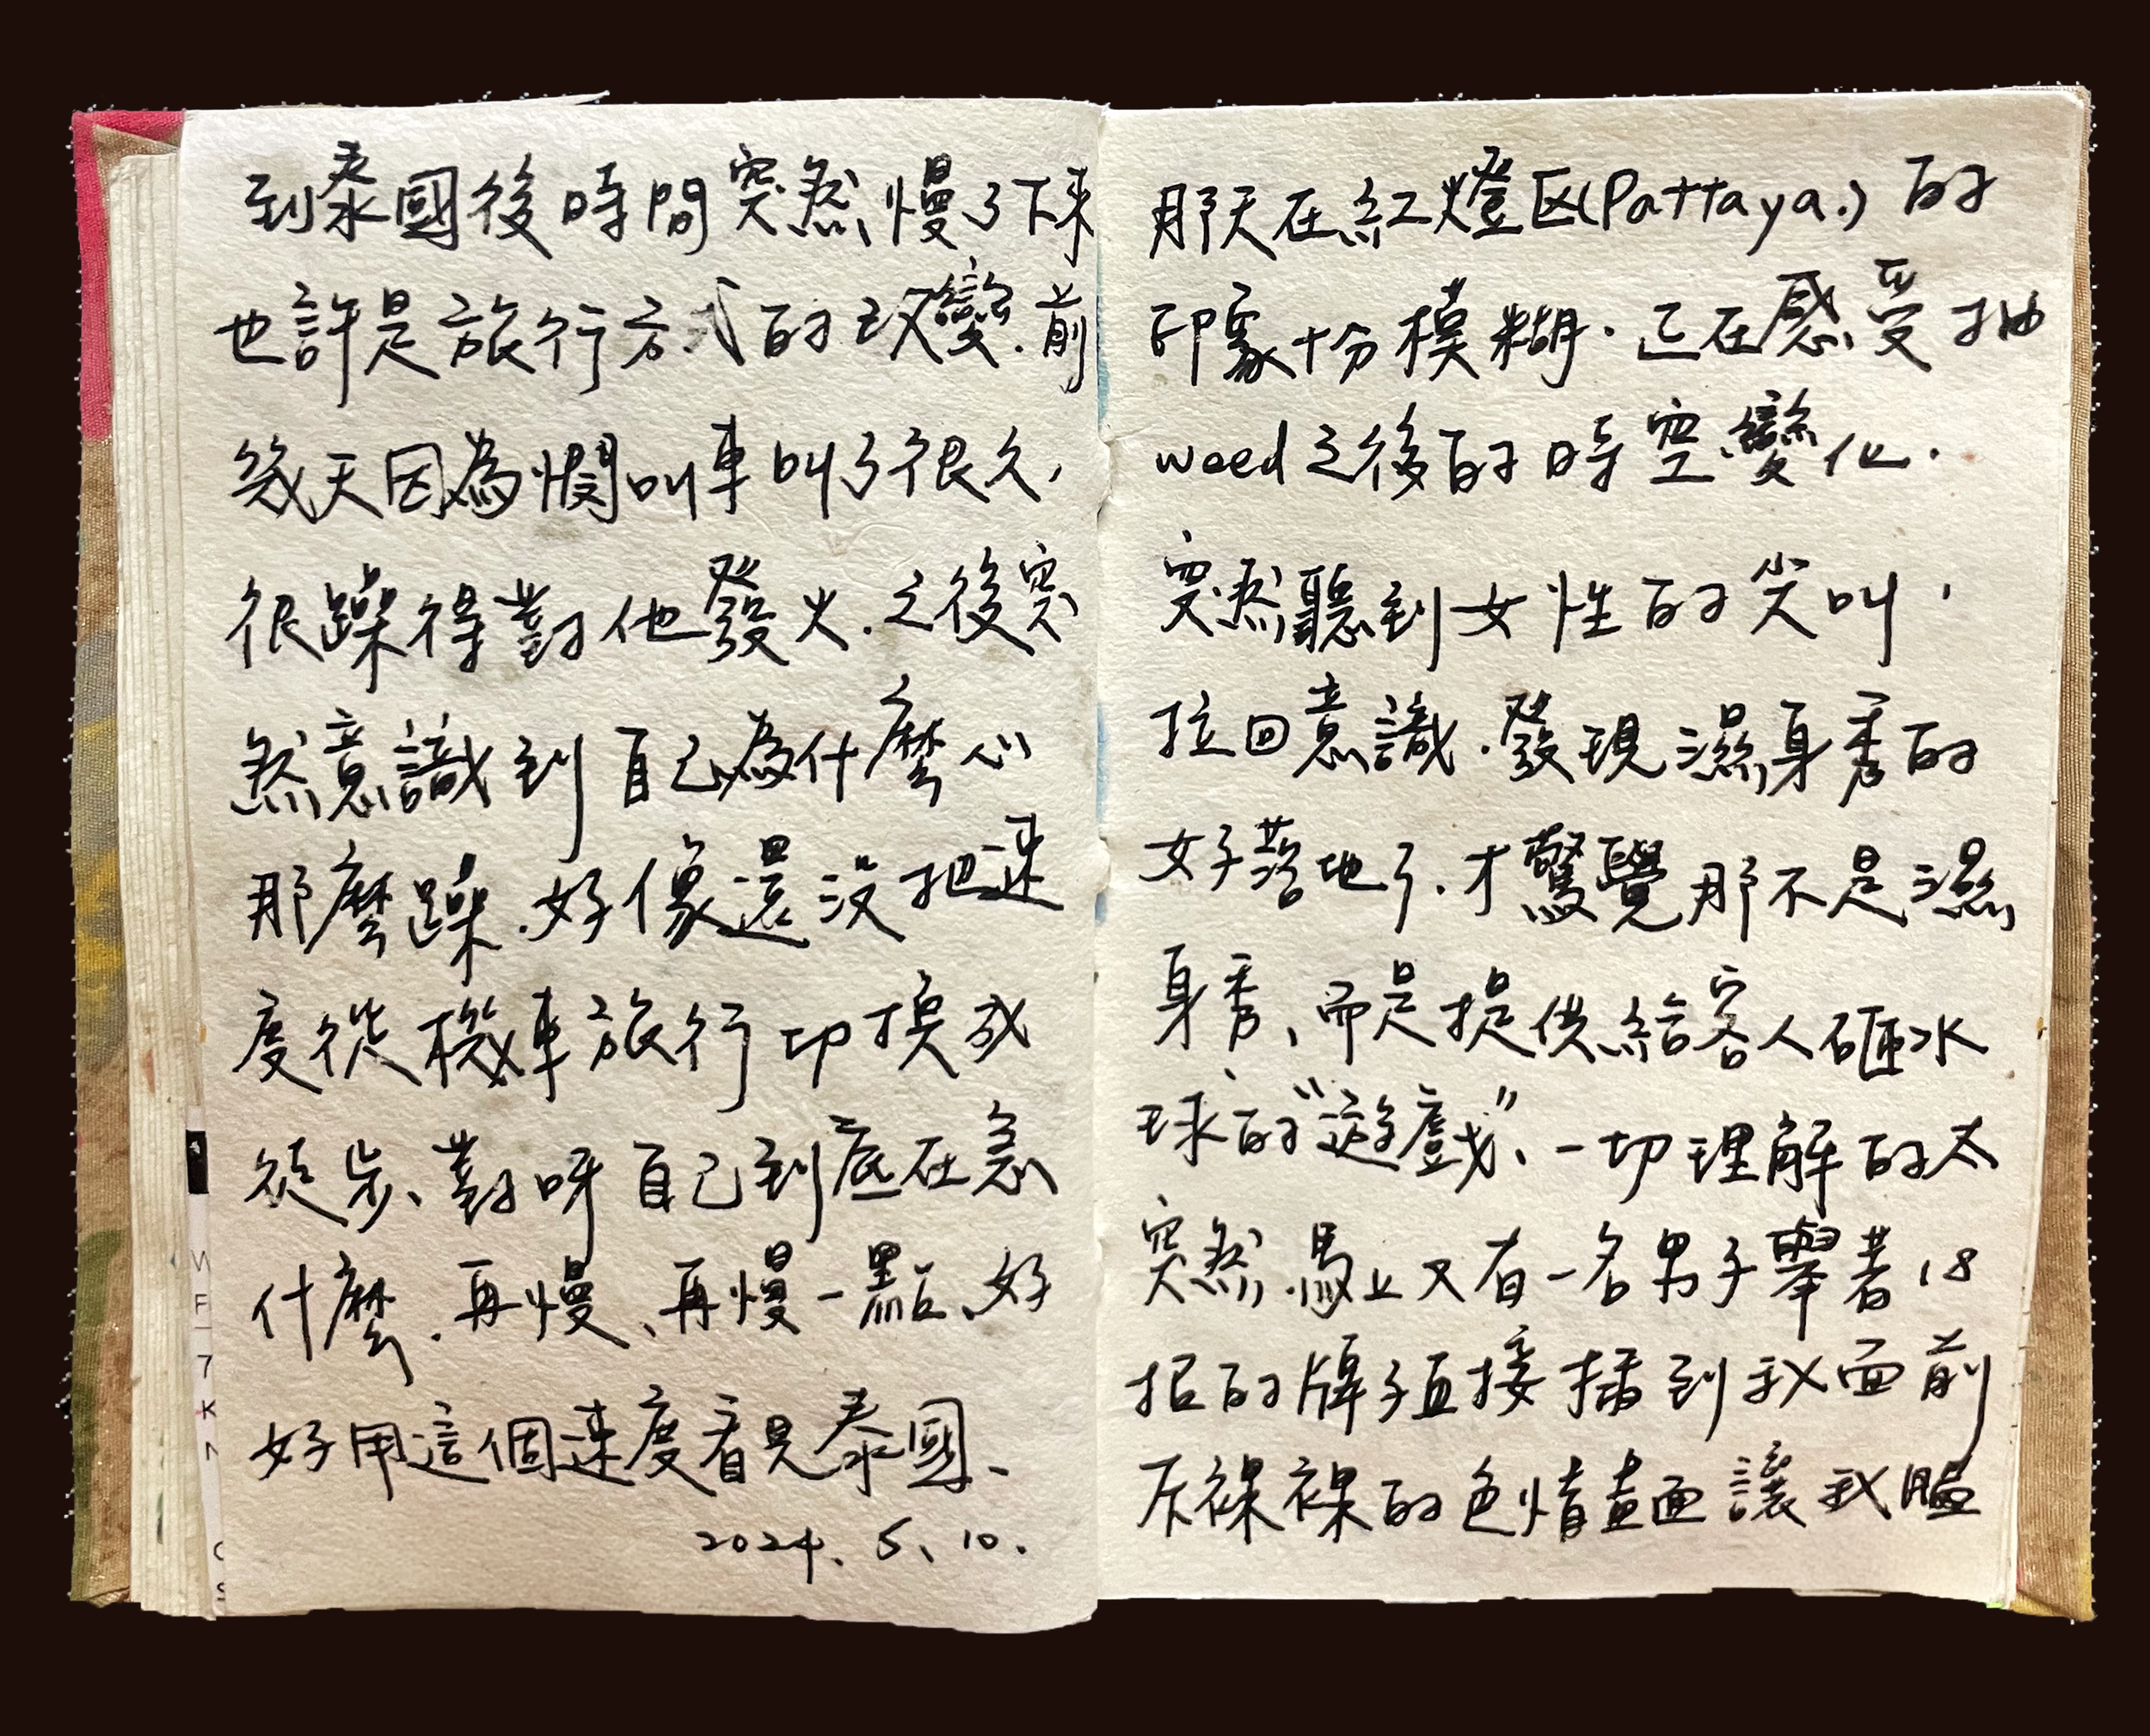 到泰國後時間突然慢了下來
也許是旅行方式的改變.前
幾天因為憫叫車叫了很久,
很躁得對他發火.之後突
然意識到自己為什麼心
那麼躁.好像還沒把速
度從機車旅行切換成
徒步、對呀自己到底在急
什麼.再慢、再慢一點、好
好用這個速度看見泰國、
2024.5.10.
那天在紅燈区(Pattaya.)的
印象十份模糊.正在感受抽
weed之後的時空變化.
突然聽到女性的尖叫,
拉回意識.發現濕身秀的
女子落地了.才驚覺那不是濕
身秀、而是提供給客人砸水
球的"遊戲"、一切理解的太
突然.馬上又有一名男子舉著18
招的牌子直接插到我面前
斥裸裸的色情畫面讓我腦
WF
7K